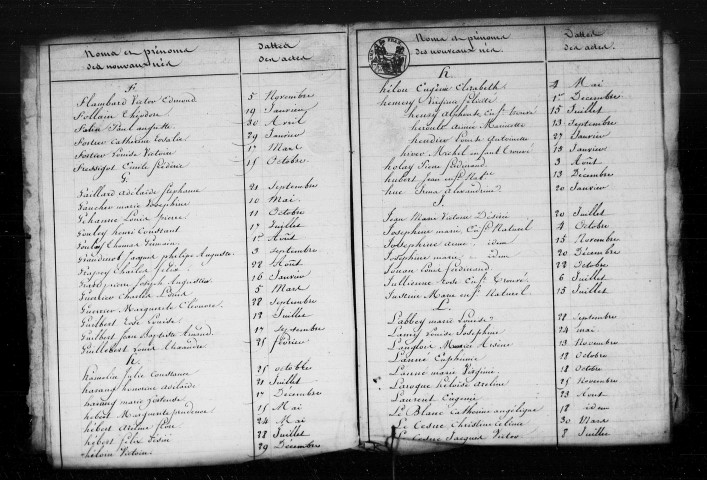 Noms et prénoms
des nouveaux nés
Dattes
des actes
F.
Flambard Victor Edmond 5 Novembre
Follain Théodore 19 Janvier
Paul auguste 30 Avril
Fortier Catherine Rosalie 29 Janvier
Fortier Louise Victoire 17 Mars
Frédéric 15 Octobre
G.
Gaillard adelaïde Stéphanie 21 Septembre
Gaucher marie Josephine 10 Mai
Gehanne Louis pierre 11 Octobre
henri Constant 17 Juillet
Thomas Germain 1er Août
Jacques philippe Auguste 3 Septembre
Charles félix 28 Août
Joseph Augustin 16 Janvier
Charles Louis 5 Mars
Marguerite Eléonore 28 Septembre
Guilbert Rose Louise 12 Juillet
Guilbert Jean Baptiste Amand 17 Septembre
Guillebert Louis Alexandre 25 février
H.
hamelin Julie Constance 25 octobre
harang honorine adelaïde 21 Juillet
harang marie 17 Décembre
hébert Marguerite prudence 15 Mai
hébert 24 Mai
hébert félix Désiré 28 Juillet
Victoire 29 Décembre
Noms et prénoms
des nouveaux nés
Dattes
des actes
H.
hélou Eugénie Elisabeth 4 Mai
1er Décembre
henry alphonse Enft trouvé 15 Juillet
13 Septembre
Louise 27 Janvier
hiver Michel enfant trouvé 19 Janvier
Pierre ferdinand 3 Août
hubert Jean enft Natel 13 Décembre
hue Irma alexandrine 20 Janvier
J.
Jean Marie Victoire Désiré 20 Juillet
Josephine marie Enft Naturel 4 Octobre
Josephine aimée idem 15 Novembre
Josephine marie idem 20 Décembre
Jouan Louis ferdinand 22 Octobre
Jullienne Rose Enft Trouvé 6 Juillet
Justine Marie enft Naturel 15 Juillet
L.
Labbey marie Louise 28 Septembre
Lamy Louise Josephine 24 mai
Langlois Arsène 13 Novembre
Lanné Euphémie 12 Octobre
Lanné marie 18 Octobre
Laroque héloïse 25 Novembre
Laurent Eugénie 23 Août
Le Blanc Catherine angélique 18 idem
Le Cesne Christine Céline 30 Mars
Le Cesne Jacques Victor 8 Juillet